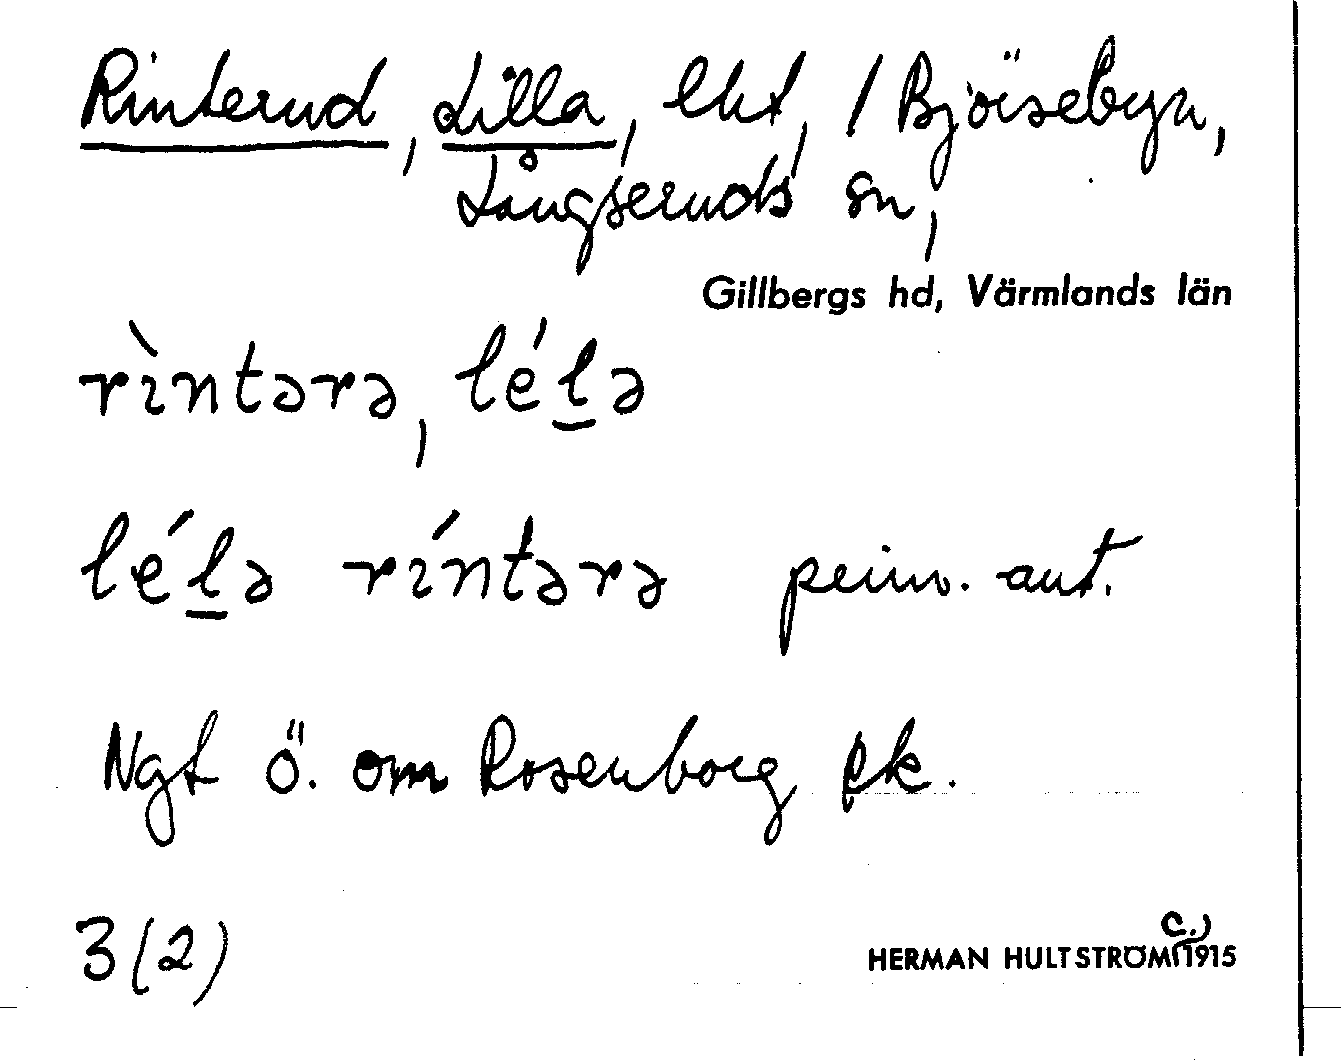 Rinterud, Lilla, lht, / Björsebyn,
Långseruds sn,
Gillbergs hd, Värmlands län
rìntərə, lé̱lə
lélə ríntərə prim. ant.
Ngt ö. om Rosenborg ek.
3(2)
HERMAN HULTSTRÖM (c.) 1915